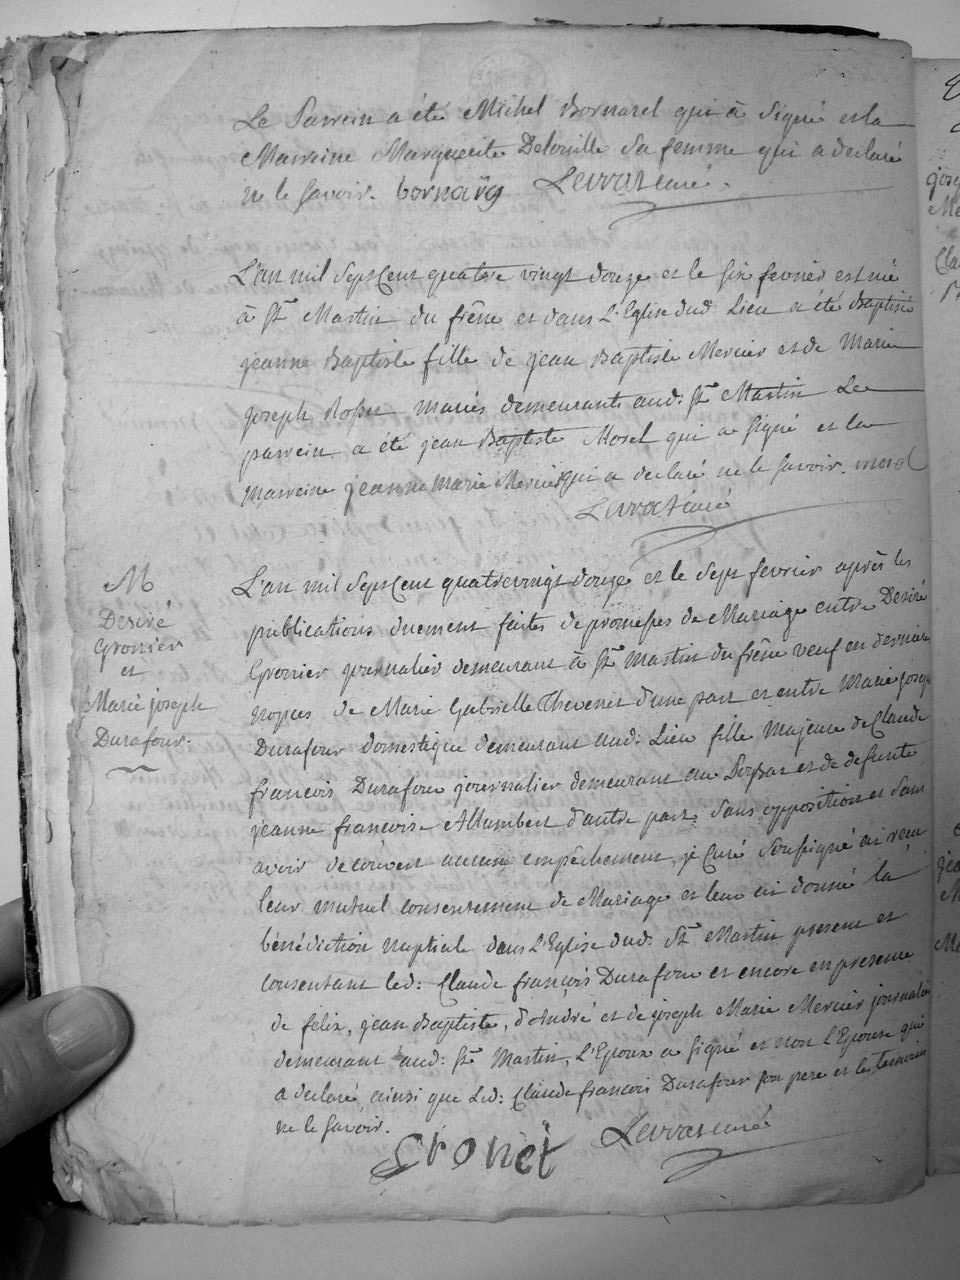 Le Parrein a été Michel Bornarel qui a Signé et la
Marreine Marguerite Delouille Sa femme qui a declaré
ne le savoir. bornarg Levrat curé.
L'an mil SeptCent quatre vingt douze et le six fevrier est né
à St Martin du frêne et dans L'Eglise dud. Lieu a été Baptisé
jeanne Baptiste fille de jean Baptiste Mercier et de Marie
joseph Rossu mariés demeurants aud: St Martin Le
parrein a été jean Baptiste Morel qui a Signé et la
marreine jeanne Marie Mercier qui a declaré ne le savoir morel
Levrat curé
M
Desiré
Gronier
et
Marie joseph
Durafour.
L'an mil SeptCent quatrevingt douze et le Sept fevrier après les
publications duement faites de promesses de Mariage entre Desiré
Gronier journalier demeurant à St Martin du frêne veuf en derniere
nopces de Marie Gabrielle Thevenet d'une part et entre Marie joseph
Durafour domestique demeurant aud: Lieu fille Majeure de Claude
francois Durafour journalier demeurant au et de defunte
jeanne francoise Allumbert d'autre part, Sans opposition et Sans
avoir decouvert aucun empêchement, je Curé Soussigné ai recu
leur mutuel consentement de Mariage et leur ai donné la
bénédiction nuptiale dans L'Eglise dud: St Martin present et
consentant led: Claude françois Durafour et encore en presence
de felix, jean Baptiste, d'André et de joseph Marie Mercier journaliers
demeurant aud: St Martin, L'Epoux a signé et non L'Epouse qui
a declaré, ainsi que Led: Claude francois Durafour son pere et les temoins
ne le savoir.
Gronet Levrat curé